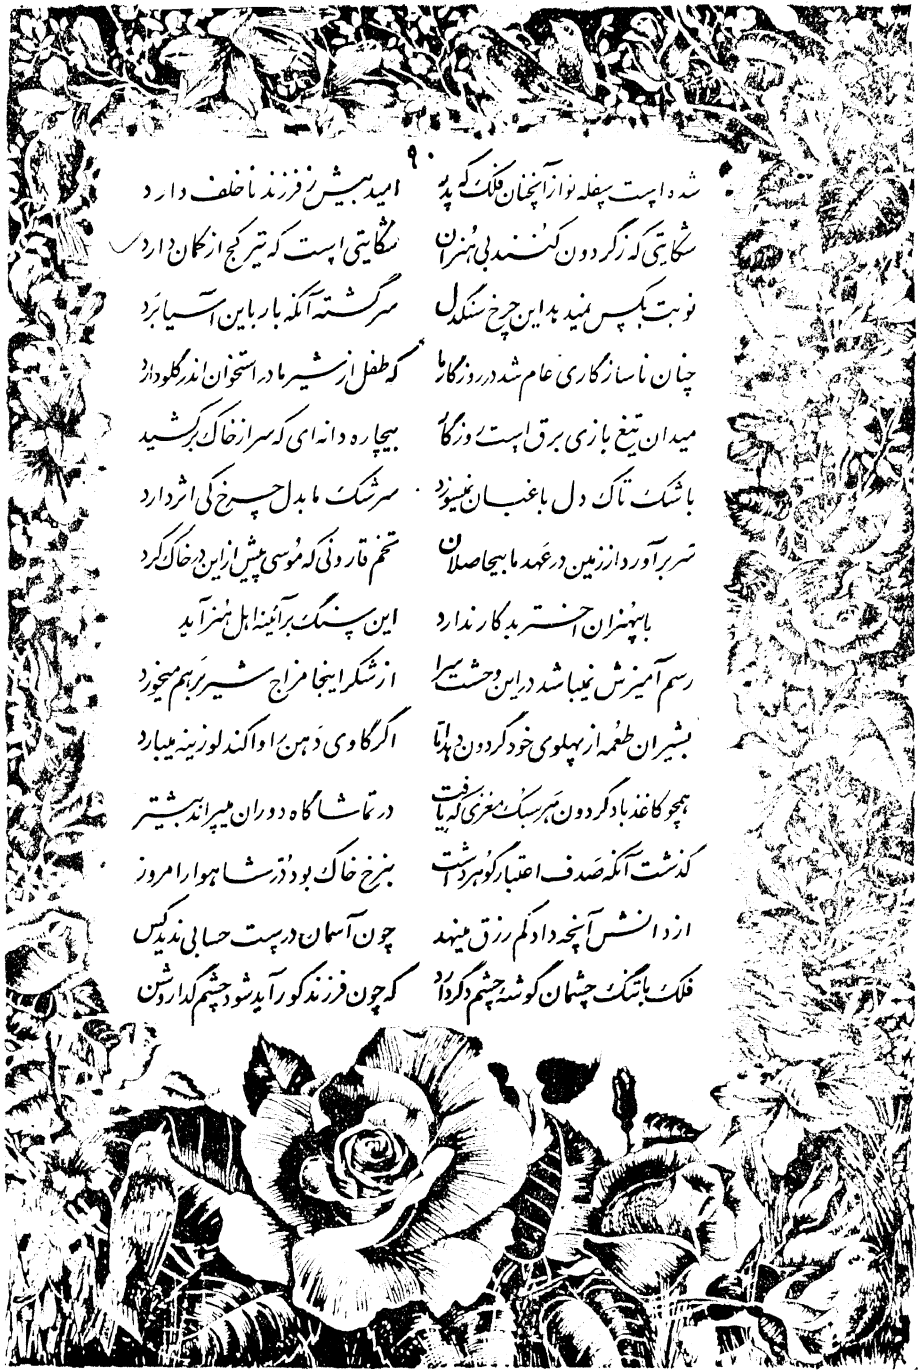 ۹۰
شده است سفله نواز آنچنان فلک که پدر امید بیش ز فرزند ناخلف دارد
شکایتی که ز گردون کنند بی هنران شکایتی است که تیر کج از کمان دارد
نوبت بکس نمیدهد این چرخ سنگدل سرگشته آنکه بار باین آسیا برد
چنان ناسازگاری عام شد در روزگار ما که طفل از شیر مادر استخوان اندر گلو دارد
میدان تیغ بازی برق است روزگار بیچاره دانه ای که سر از خاک برکشید
باشک تاک دل باغبان نمیسوزد سرشک ما بدل چرخ کی اثر دارد
سر برآورد از زمین در عهد ما بیحاصلان تخم قارونی که موسی پیش ازین در خاک کرد
با بیهنران اختر بد کار ندارد این سنگ بر آئینه اهل هنر آید
رسم آمیزش نمیباشد در این وحشت سرا از شکر اینجا مزاج شیر بر هم میخورد
بشیران طعمه از پهلوی خود گردون دهد اما اگر گاوی دهن را وا کند لوزینه میبارد
همچو کاغذ باد گردون هر سبک مغزی که یافت در تماشاگاه دوران میپراند بیشتر
گذشت آنکه صدف اعتبار گوهر داشت بنرخ خاک بود در شاهوار امروز
از دانش آنچه داد کم رزق مینهد چون آسمان درست حسابی ندید کس
فلک با تنگ چشمان گوشه چشم دگر دارد که چون فرزند کور آید شود چشم گدا روشن